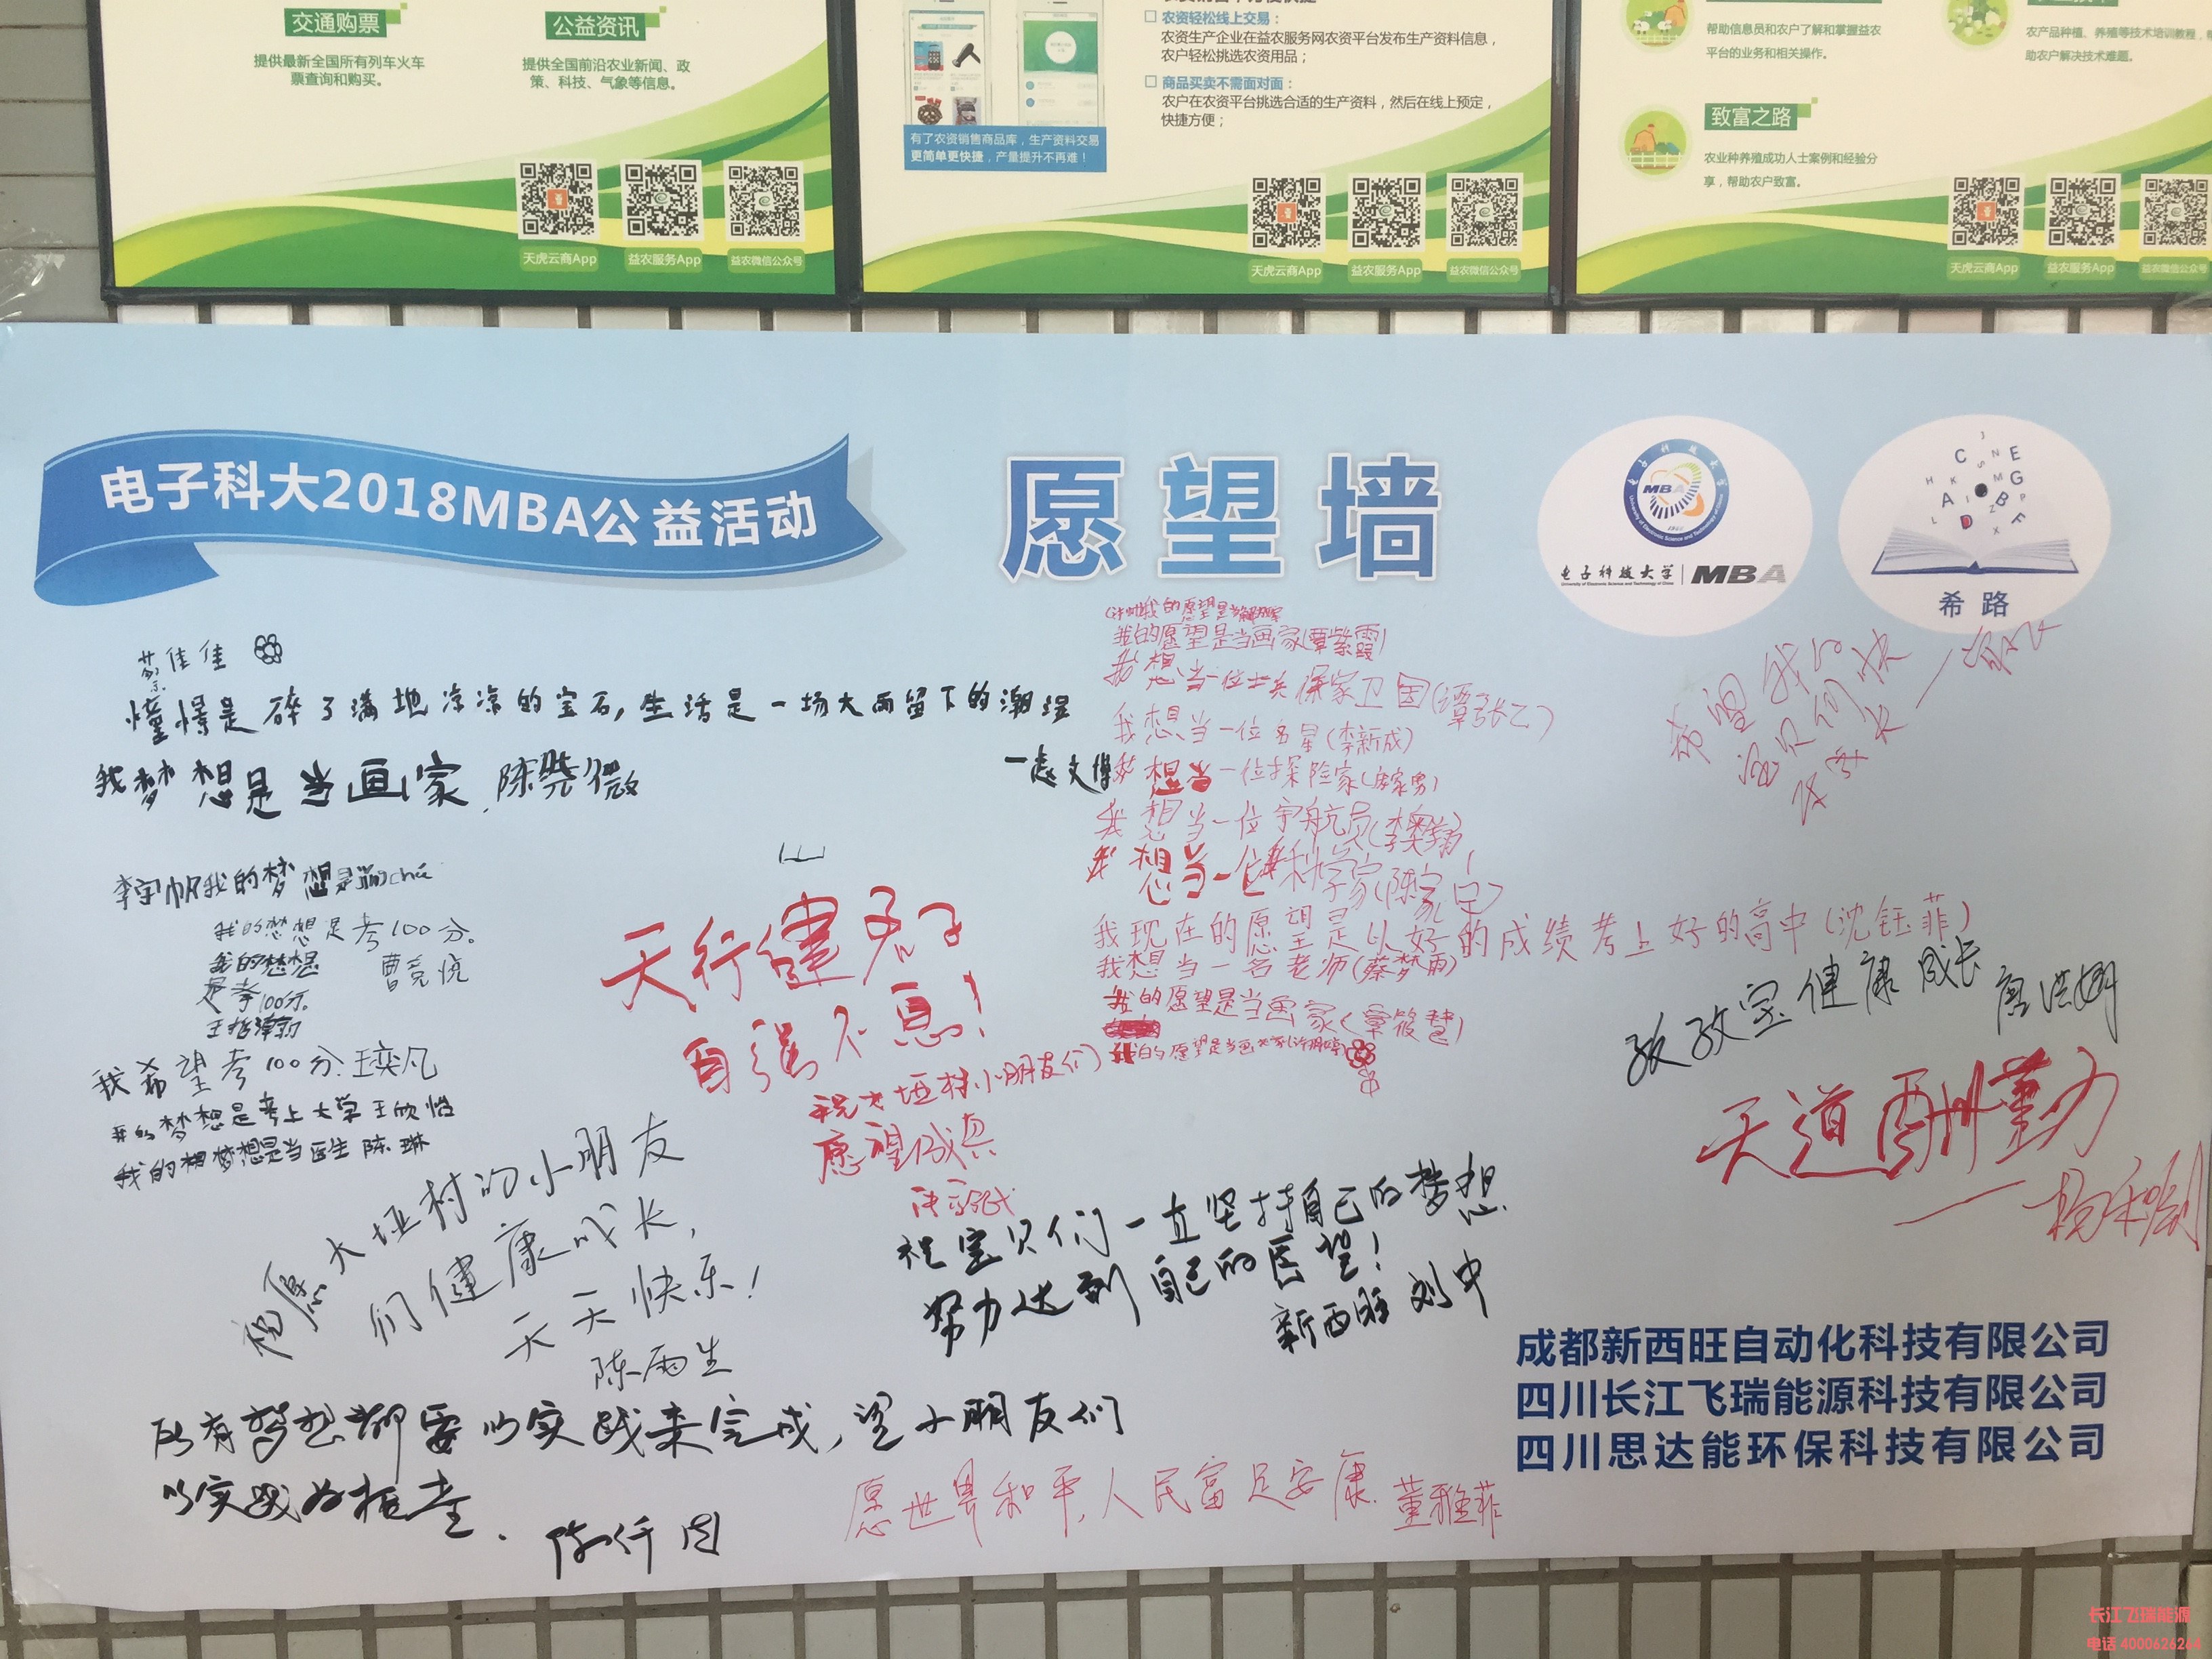 交通购票
提供最新全国所有列车火车
票查询和购买。
公益资讯
提供全国前沿农业新闻、政
策、科技、气象等信息。
天虎云商App
益农服务App
益农微信公众号
农资轻松线上交易：
农资生产企业在益农服务网农资平台发布生产资料信息，
农户轻松挑选农资用品；
商品买卖不需面对面：
农户在农资平台挑选合适的生产资料，然后在线上预定，
快捷方便；
有了农资销售商品库，生产资料交易
更简单更快捷，产量提升不再难！
天虎云商App
益农服务App
益农微信公众号
帮助信息员和农户了解和掌握益农
平台的业务和相关操作。
农产品种植、养殖等技术培训教程，
助农户解决技术难题。
致富之路
农业种养殖成功人士案例和经验分
享，帮助农户致富。
天虎云商App
益农服务App
益农微信公众号
电子科大2018MBA公益活动
愿望墙
MBA
电子科技大学 MBA
University of Electronic Science and Technology of China
希路
蔡佳佳
憧憬是碎了满地凉凉的宝石，生活是一场大雨留下的潮湿
我梦想是当画家 陈 微
李宇帆我的梦想是
我的梦想是考100分。
我的梦想
是考100分。
我希望考100分 王奕凡
我的梦想是考上大学 王欣怡
我的梦想是当医生 陈琳
祝愿大垭村的小朋友
们健康成长，
天天快乐！
陈雨生
所有梦想都要以实践来完成，望小朋友们
以实践为
天行健君子
自强不息！
祝大垭村小朋友们
愿望成真
我的愿望是当画家(覃紫霞)
我想当一位士兵保家卫国(谭张乙)
我想当一位名星(李新成)
我想当一位探险家
我想当一位宇航员(李奥翔)
我想当一位科学家
我现在的愿望是以好的成绩考上好的高中(沈钰菲)
我想当一名老师(蔡梦雨)
我的愿望是当画家(覃筱慧)
我的愿望是当画家
希望我们
宝健康成长
天道酬勤
祝宝贝们一直坚持自己的梦想
努力达到自己的愿望！
新西旺 刘中
愿世界和平，人民富足安康. 董雅菲
成都新西旺自动化科技有限公司
四川长江飞瑞能源科技有限公司
四川思达能环保科技有限公司
长江飞瑞能源
电话 4000626264